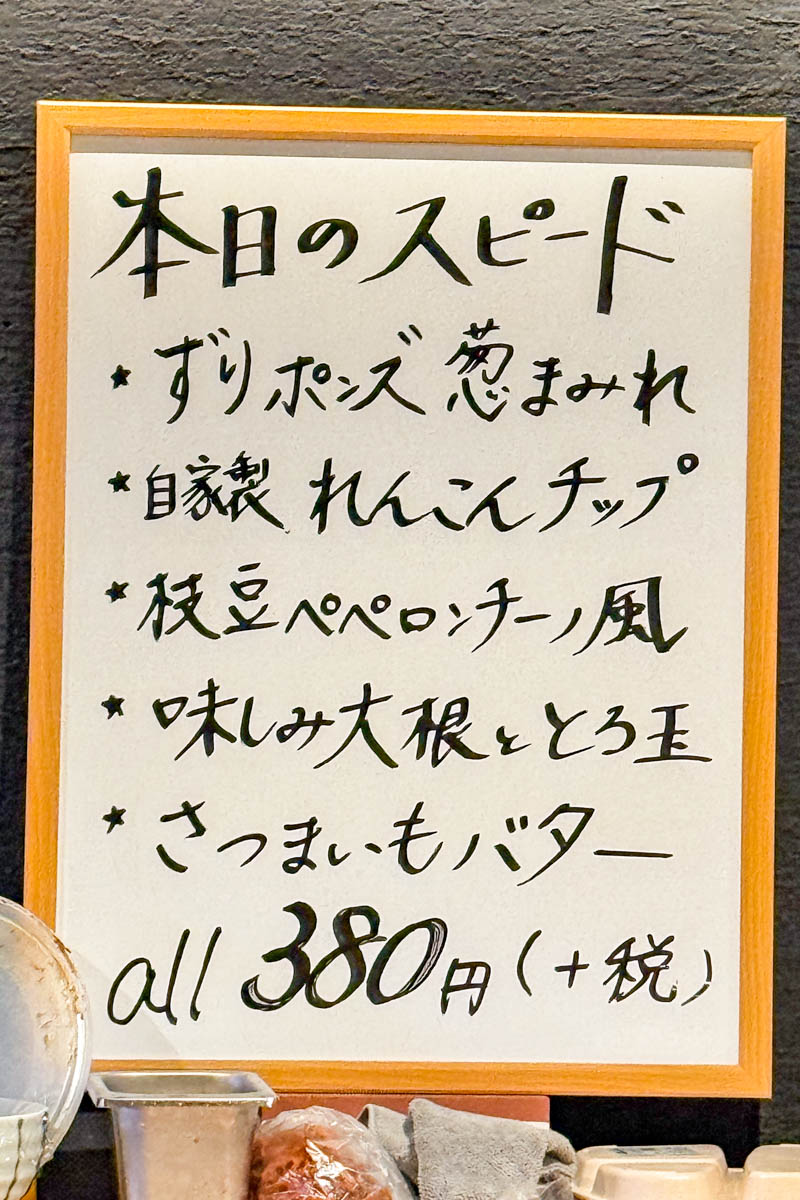 本日のスピード
★ ずりポンズ 葱まみれ
★ 自家製 れんこんチップ
★ 枝豆ペペロンチーノ風
★ 味しみ大根ととろ玉
★ さつまいもバター
all 380円(+税)